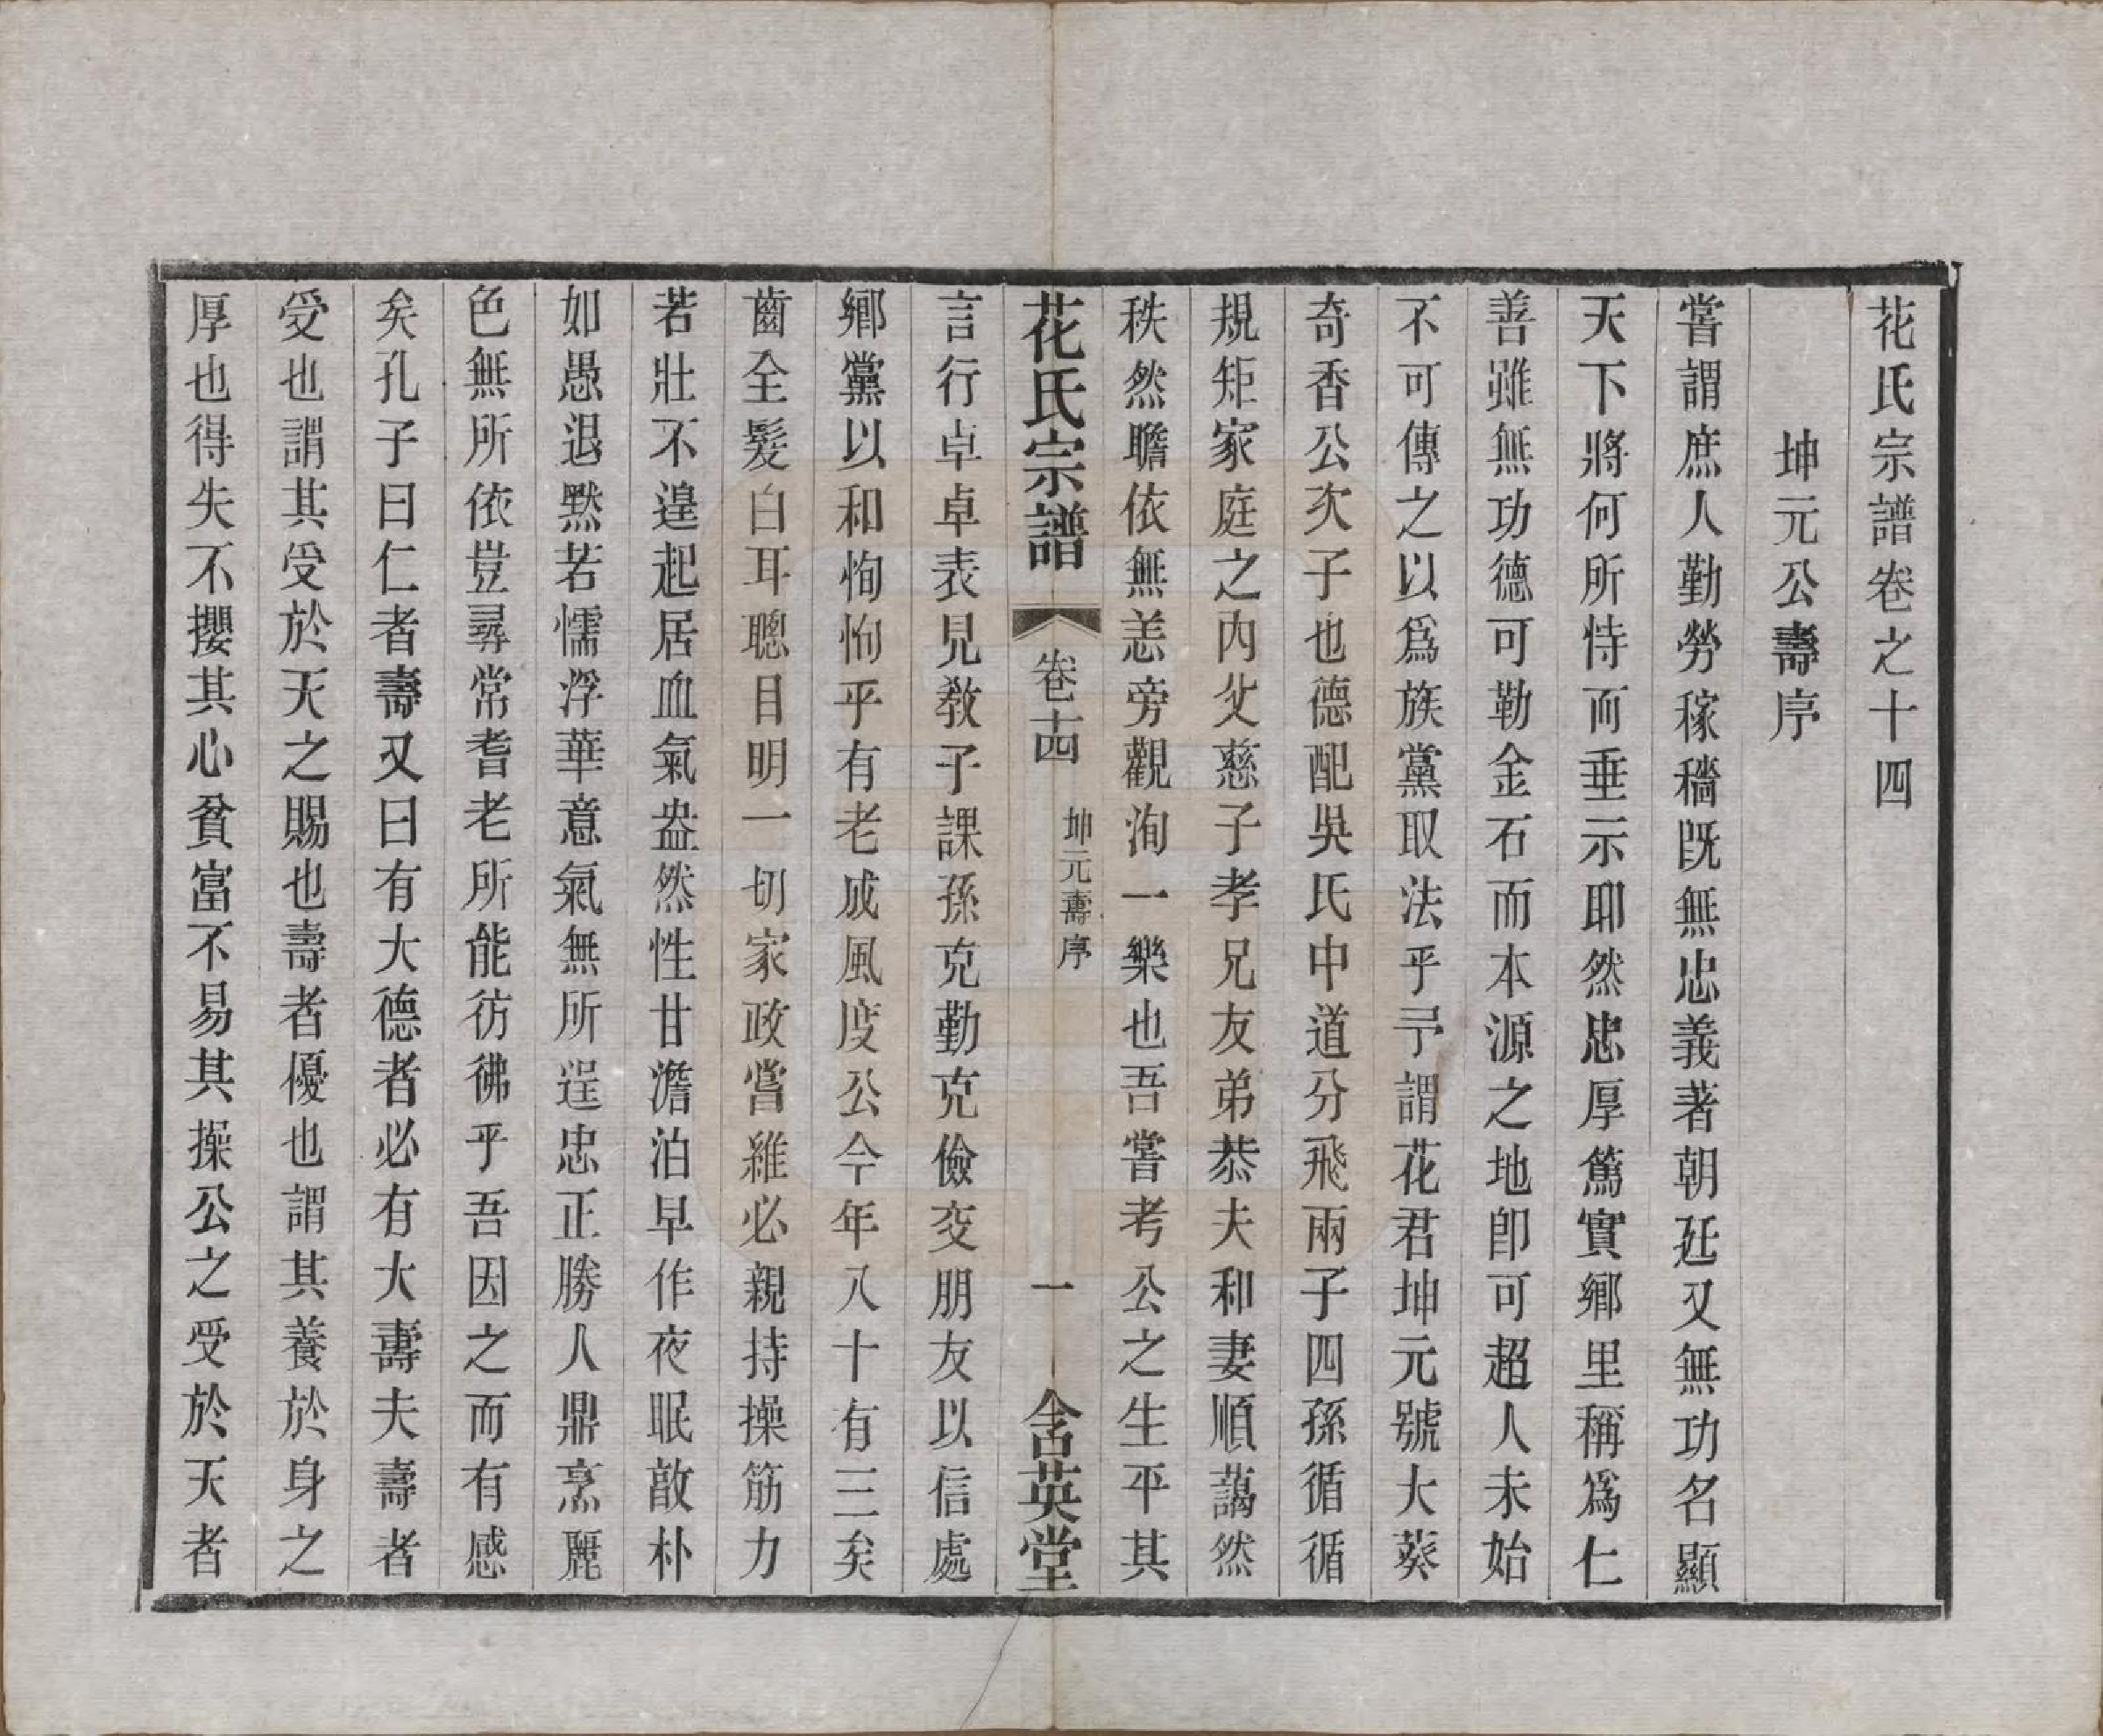 花氏宗譜卷之十四
坤元公壽序
嘗謂庶人勤勞稼穡旣無忠義著朝廷又無功名顯
天下將何所恃而垂示耶然忠厚篤實鄉里稱爲仁
善雖無功德可勒金石而本源之地卽可超人未始
不可傳之以爲族黨取法乎予謂花君坤元號大葵
奇香公次子也德配吳氏中道分飛兩子四孫循循
規矩家庭之內父慈子孝兄友弟恭夫和妻順藹然
秩然瞻依無恙旁觀洵一樂也吾嘗考公之生平其
花氏宗譜 卷十四 坤元壽序 一 含英堂
言行卓卓表見敎子課孫克勤克儉交朋友以信處
鄉黨以和恂恂乎有老成風度公今年八十有三矣
齒全髮白耳聰目明一切家政嘗維必親持操筋力
若壯不遑起居血氣盎然性甘澹泊早作夜眠敵朴
如愚退黙若懦浮華意氣無所逞忠正勝人鼎烹麗
色無所依豈尋常耆老所能彷彿乎吾因之而有感
矣孔子曰仁者壽又曰有大德者必有大壽夫壽者
受也謂其受於天之賜也壽者優也謂其養於身之
厚也得失不攖其心貧富不易其操公之受於天者